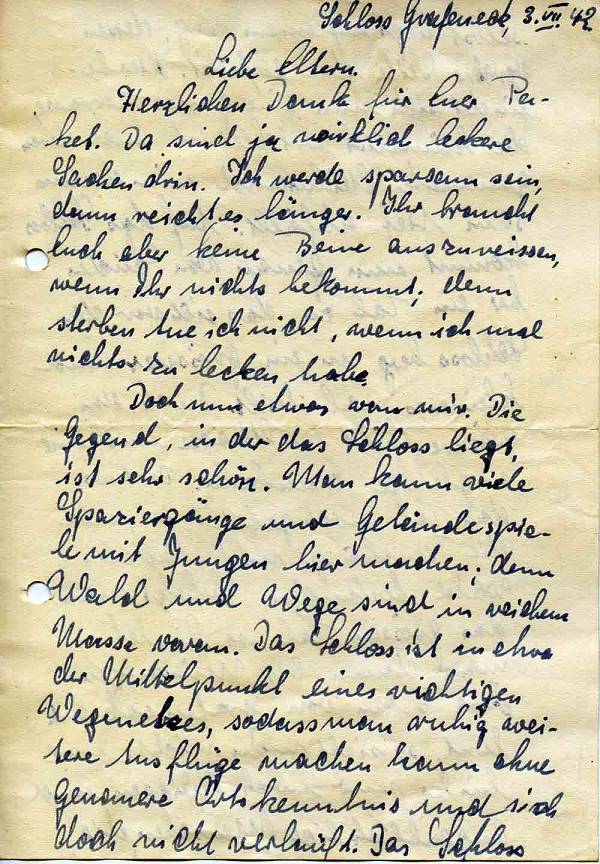 Schloss Grafeneck, 3.VII.42
Liebe Eltern.
Herzlichen Dank für Euer Pa-
ket. Da sind ja wirklich leckere
Sachen drin. Ich werde sparsam sein,
dann reicht es länger. Ihr braucht
Euch aber keine Beine auszureissen,
wenn Ihr nichts bekommt, denn
sterben tue ich nicht, wenn ich mal
nichts zu lecken habe.
Doch nun etwas von mir. Die
Gegend, in der das Schloss liegt,
ist sehr schön. Man kann viele
Spaziergänge und Geländespie-
le mit Jungen hier machen; denn
Wald und Wege sind in reichem
Masse voran. Das Schloss ist in etwa
der Mittelpunkt eines richtigen
Wegenetzes, sodass man ruhig wei-
tere Ausflüge machen kann ohne
genauere Ortskenntnis und sich
doch nicht verläuft. Das Schloss